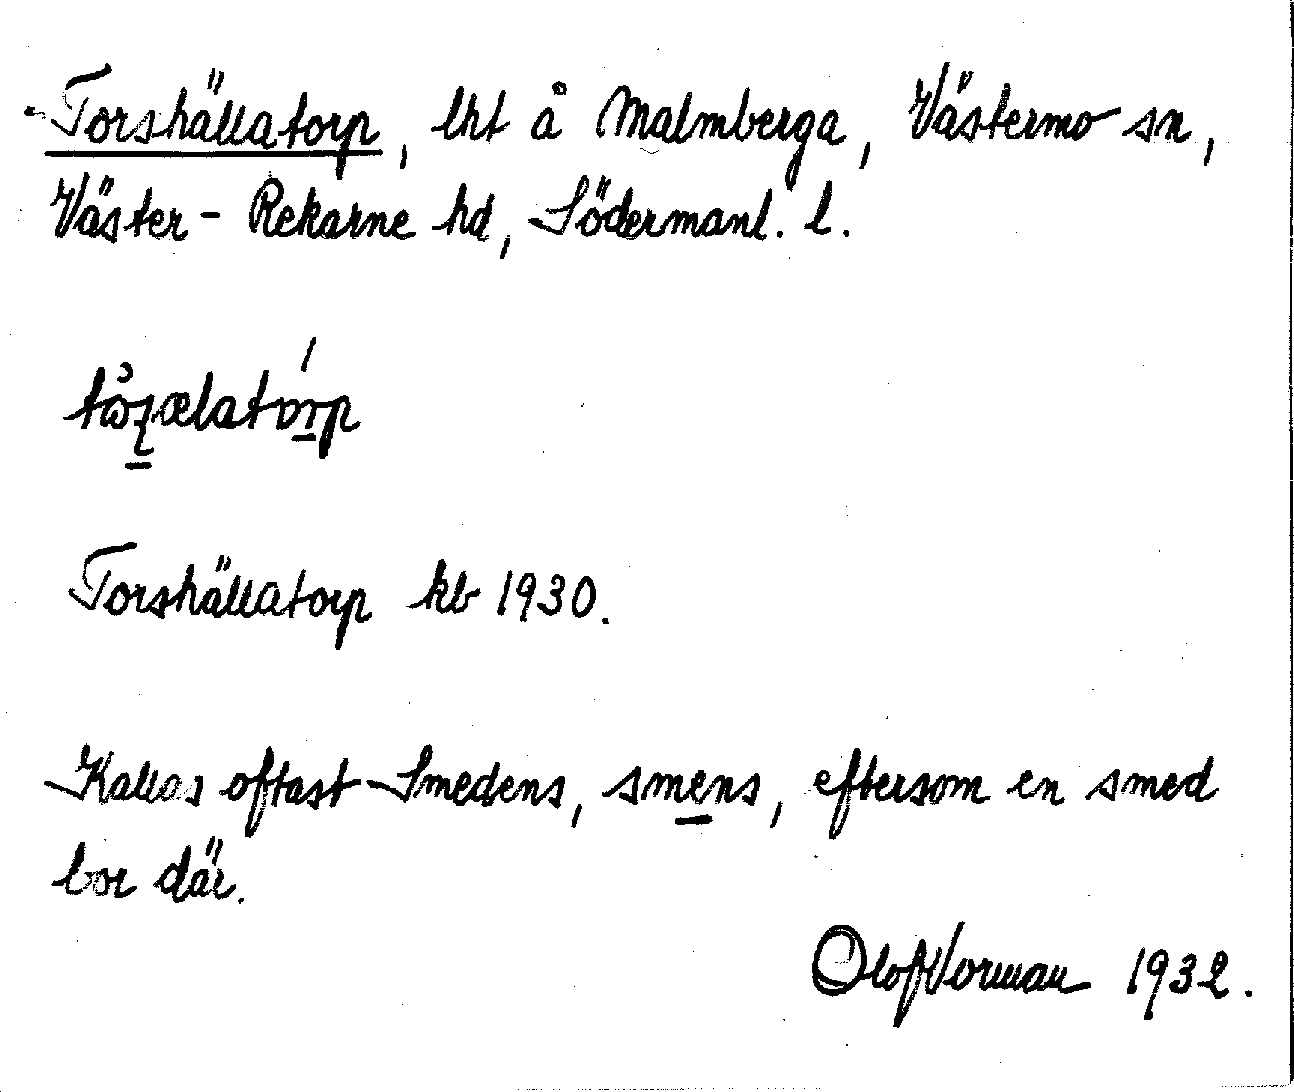 Torshällatorp, lht å Malmberga, Västermo sn,
Väster-Rekarne hd, Södermanl. l.
Torshällatorp kb 1930.
Kallas oftast Smedens, smens, eftersom en smed
bor där.
Olof Vorman 1932.